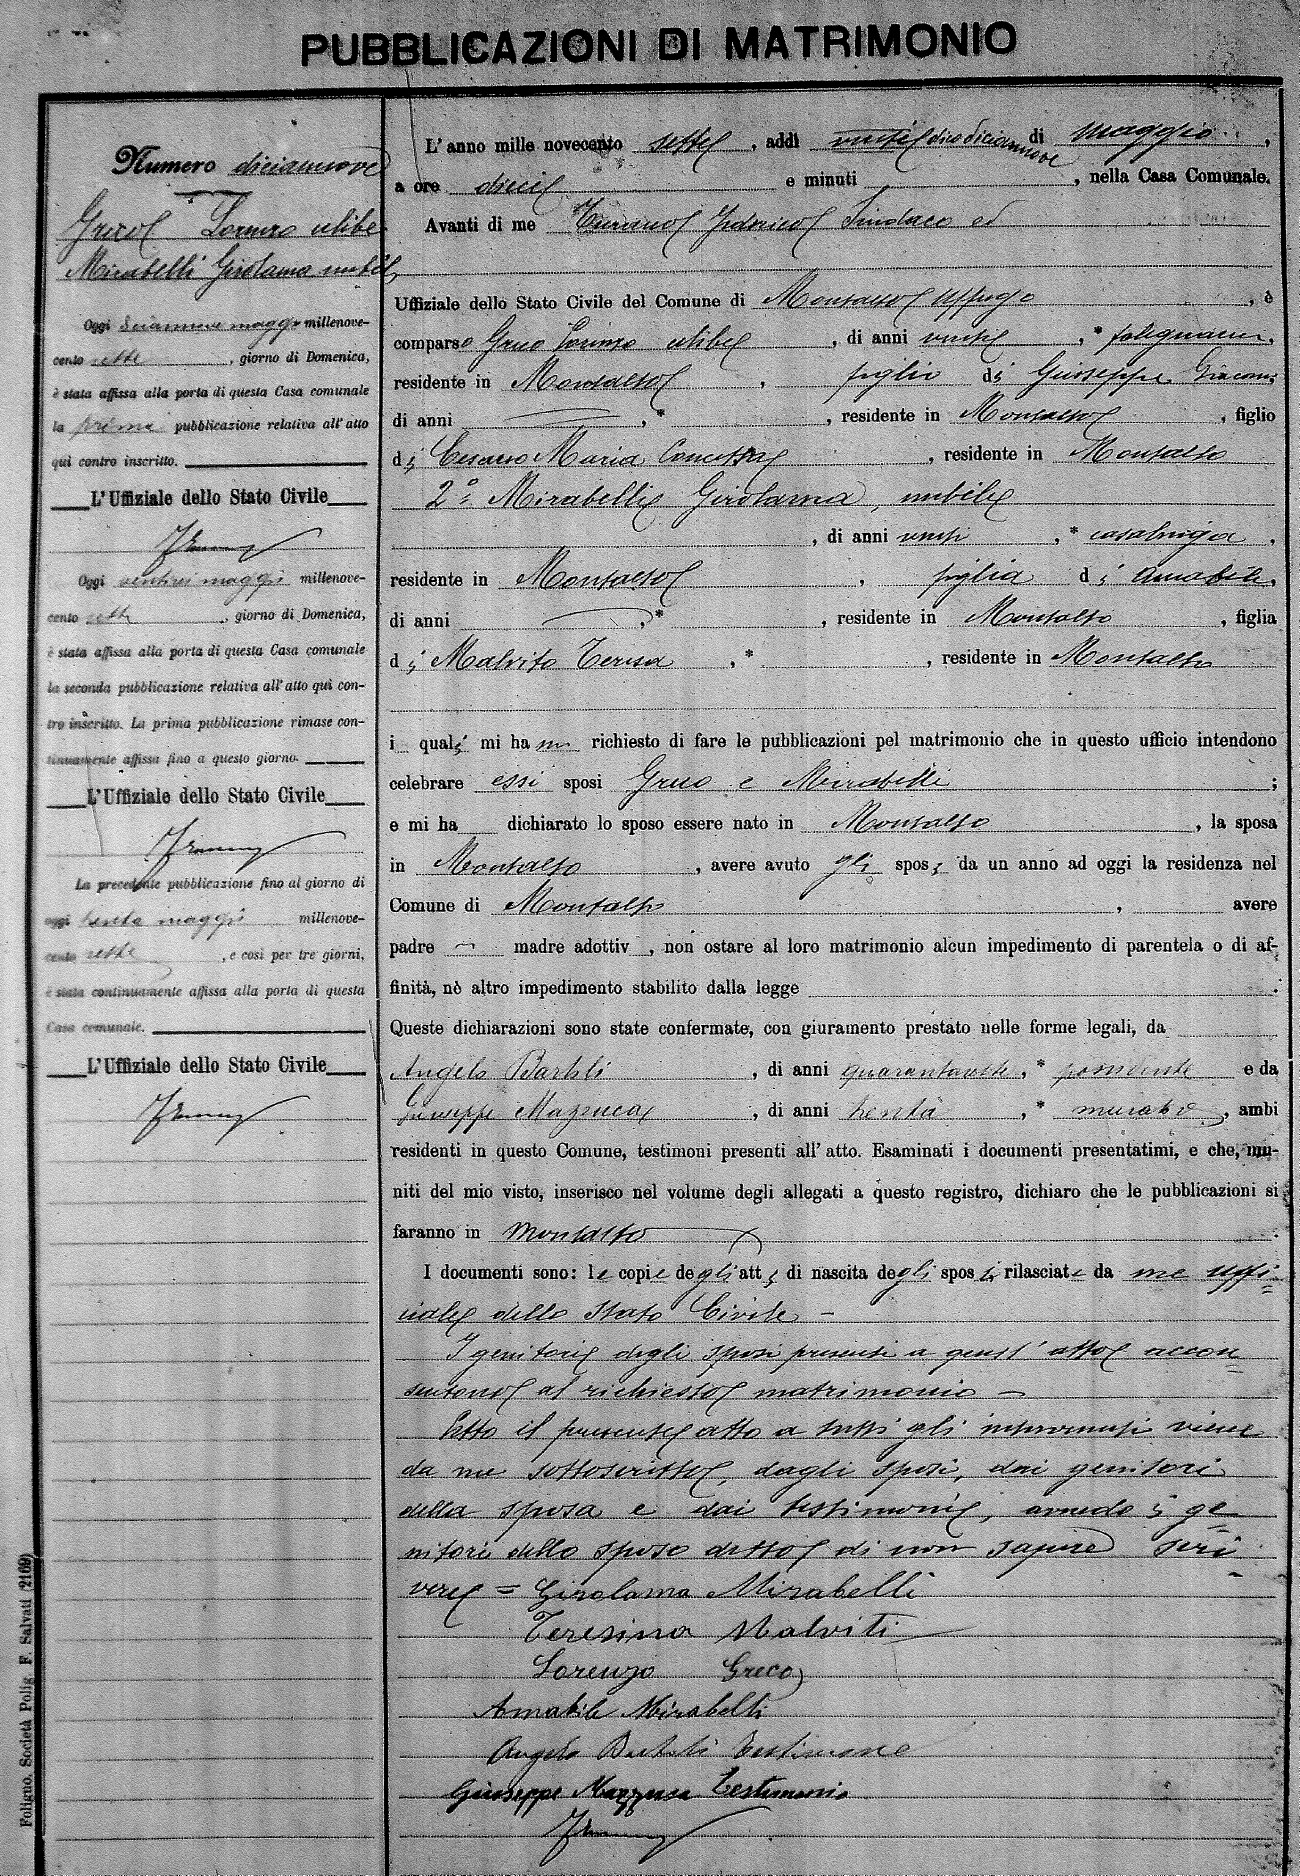 PUBBLICAZIONI DI MATRIMONIO
Numero diciannove
Greco Lorenzo celibe
Mirabelli Girolama nubile
Oggi diciannove maggio millenove-
cento sette, giorno di Domenica,
è stata affissa alla porta di questa Casa comunale
la prima pubblicazione relativa all'atto
qui contro inscritto.
L'Uffiziale dello Stato Civile
Oggi ventisei maggio millenove-
cento sette, giorno di Domenica,
è stata affissa alla porta di questa Casa comunale
la seconda pubblicazione relativa all'atto qui con-
tro inscritto. La prima pubblicazione rimase con-
tinuamente affissa fino a questo giorno.
L'Uffiziale dello Stato Civile
La precedente pubblicazione fino al giorno di
oggi trenta maggio millenove-
cento sette, e così per tre giorni,
è stata continuamente affissa alla porta di questa
Casa comunale.
L'Uffiziale dello Stato Civile
L'anno mille novecento sette, addì dico diciannove di maggio,
a ore dieci e minuti , nella Casa Comunale.
Avanti di me Federico Sindaco ed
Uffiziale dello Stato Civile del Comune di Montalto Uffugo, è
comparso Greco Lorenzo celibe, di anni venti, * falegname,
residente in Montalto, figlio di Giuseppe
di anni , * , residente in Montalto, figlio
di Cesario Maria Concetta, residente in Montalto
2° Mirabelli Girolama, nubile
, di anni venti, * casalinga,
residente in Montalto, figlia di Amabile,
di anni , * , residente in Montalto, figlia
di Malvito Teresa, * , residente in Montalto
i quali mi hanno richiesto di fare le pubblicazioni pel matrimonio che in questo ufficio intendono
celebrare essi sposi Greco e Mirabelli ;
e mi ha dichiarato lo sposo essere nato in Montalto, la sposa
in Montalto, avere avuto gli sposi da un anno ad oggi la residenza nel
Comune di Montalto, avere
padre madre adottiv , non ostare al loro matrimonio alcun impedimento di parentela o di af-
finità, nè altro impedimento stabilito dalla legge .
Queste dichiarazioni sono state confermate, con giuramento prestato nelle forme legali, da
Angelo Bartoli, di anni * possidente e da
Giuseppe Mazzuca, di anni trenta, * muratore, ambi
residenti in questo Comune, testimoni presenti all'atto. Esaminati i documenti presentatimi, e che, mu-
niti del mio visto, inserisco nel volume degli allegati a questo registro, dichiaro che le pubblicazioni si
faranno in Montalto .
I documenti sono: le copie degli atti di nascita degli sposi rilasciate da me uffi=
ciale dello Stato Civile –
I genitori degli sposi presenti a quest'atto accon=
sentono al richiesto matrimonio –
Letto il presente atto a tutti gli intervenuti viene
da me sottoscritto, dagli sposi, dai genitori
della sposa e dai testimoni, avendo i ge=
nitori dello sposo detto di non sapere scri-
vere = Girolama Mirabelli
Teresina Malviti
Lorenzo Greco
Amabile Mirabelli
Angelo Bartoli testimone
Giuseppe Mazzuca testimonio
Foligno, Società Polig. F. Salvati (2169)